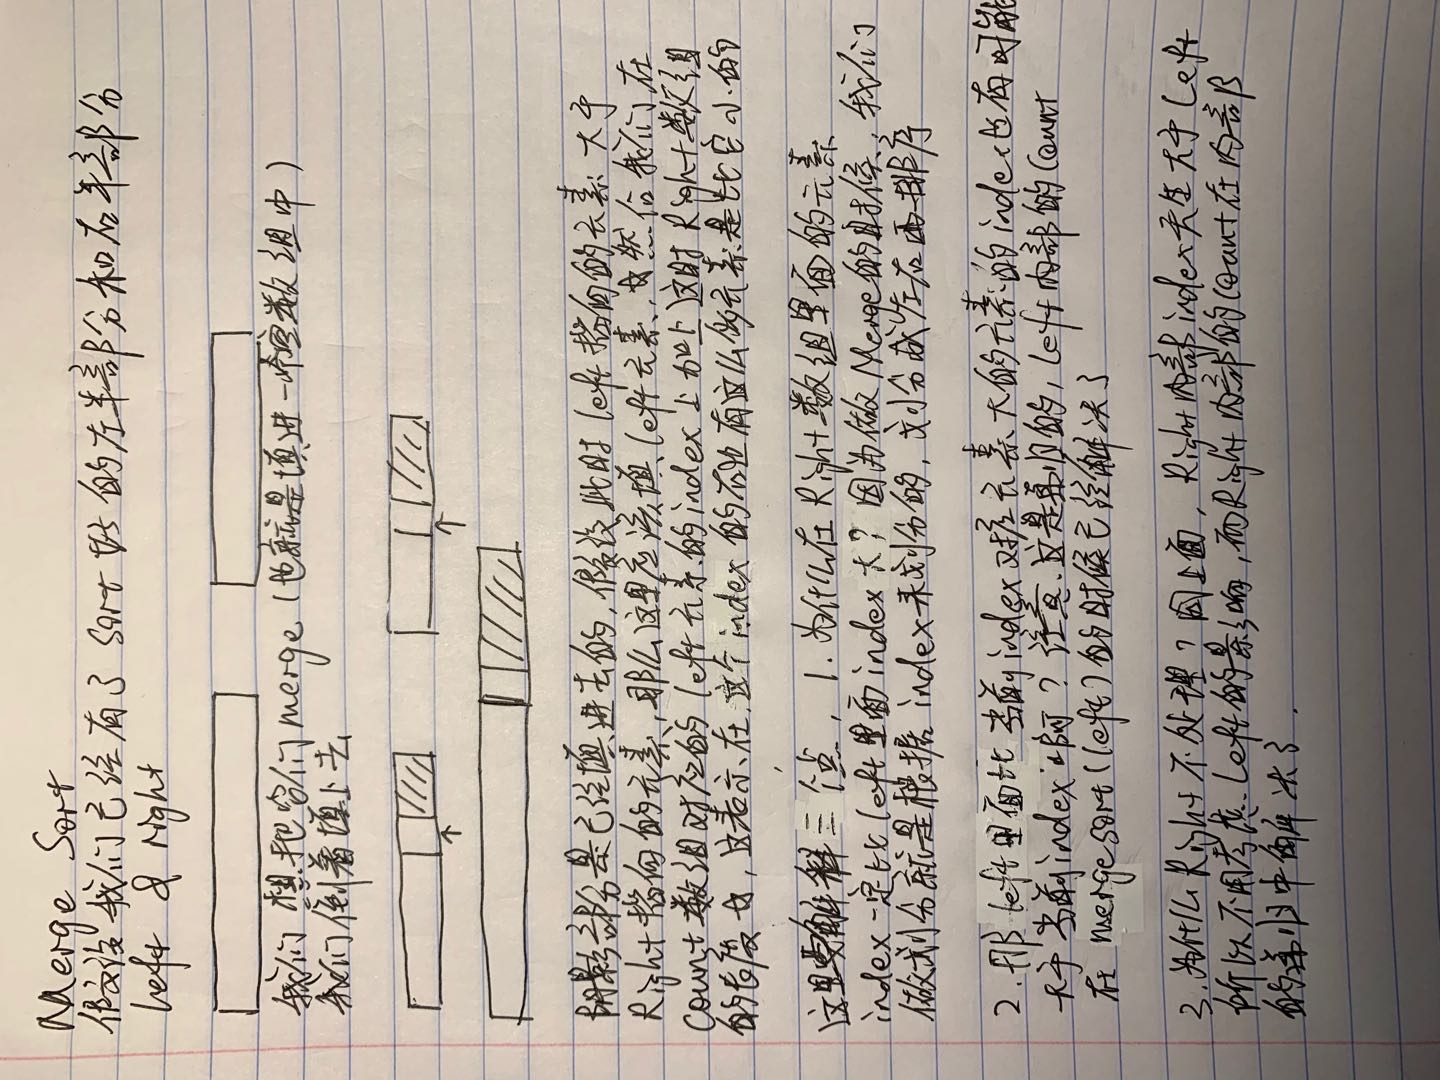 Merge Sort
假设我们已经有了 sort 好的左半部分和右半部分
left & right
我们想把它们merge (也就是填进一个空数组中)
我们倒着填上去
阴影部分是已经填进去的, 假设此时 left 指向的元素大于
Right 指向的元素, 那么这里应该填 left 元素, 然后我们在
count 数组对应的 left 元素的 index 上加上这时 Right 数组
的长度, 这表示在这个 index 的右边有这么多元素是比它小的
这里要解释三个点, 1. 为什么在 Right 数组里面的元素
index 一定比 left 里面 index 大? 因为做 Merge 的时候, 我们
做划分就是根据 index 来划分的, 划分成左右再排序
2. 那 left 里面比当前 index 对应元素大的元素的 index 也有可能
大于当前 index 啊? 注意这是递归的, Left 内部的 Count
在 merge sort (left) 的时候已经解决了
3. 为什么 Right 不处理? 同上面, Right 内部 index 天生大于 Left
所以不用考虑 Left 的影响, 而 Right 内部的 Count 在内部
的递归中解决了.